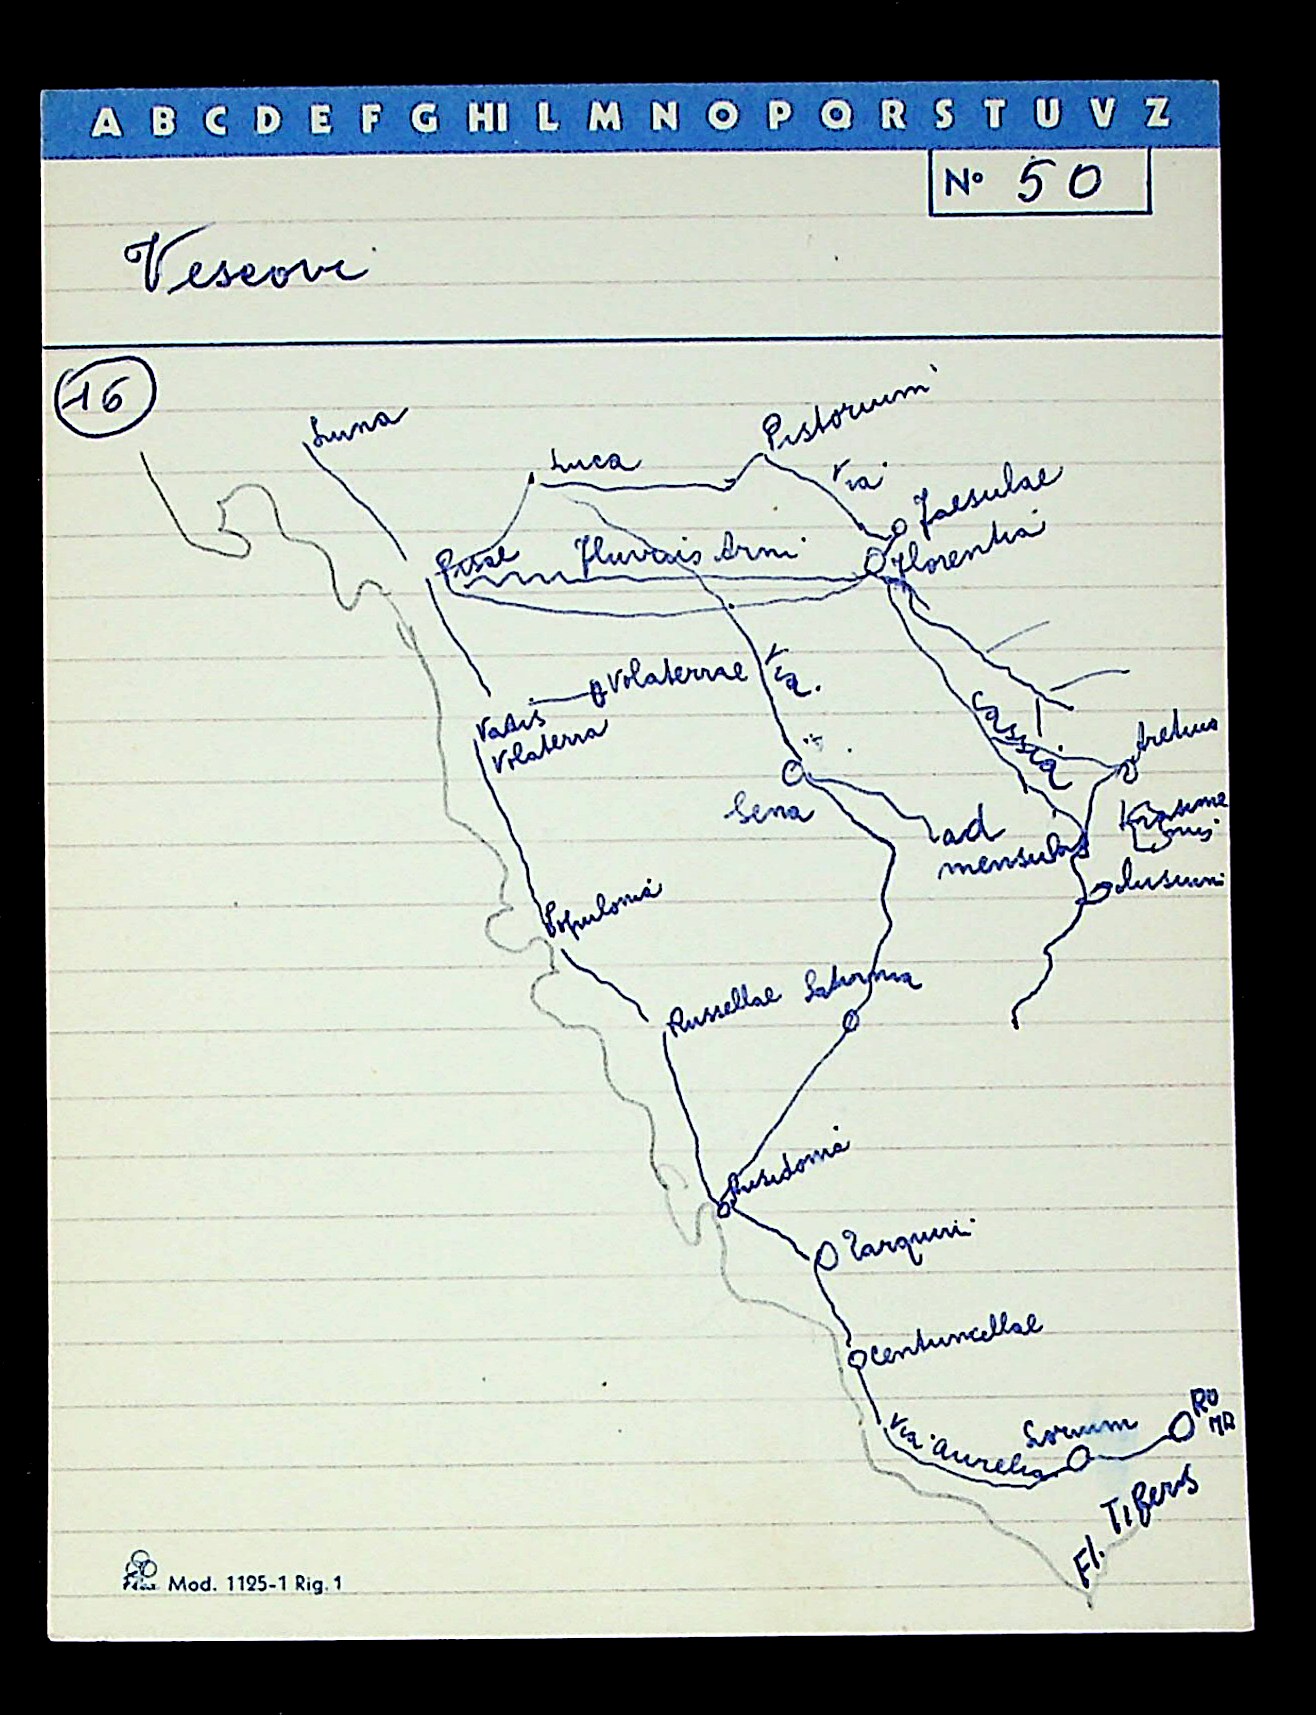 A B C D E F G HI L M N O P Q R S T U V Z
N° 50
Vescovi
16
Luna
Pistorium
Luca
Via
Faesulae
Pisae
Fluvius Arni
Florentia
Volaterrae
Via
Vadis
Volaterra
Cassia
Aretium
Sena
ad
mensulas
Clusium
Populonia
Russellae
Saturnia
Cusidonia
Tarquini
Centumcellae
Via Aurelia
Lorium
RO
MA
Fl. Tiberis
Mod. 1125-1 Rig. 1